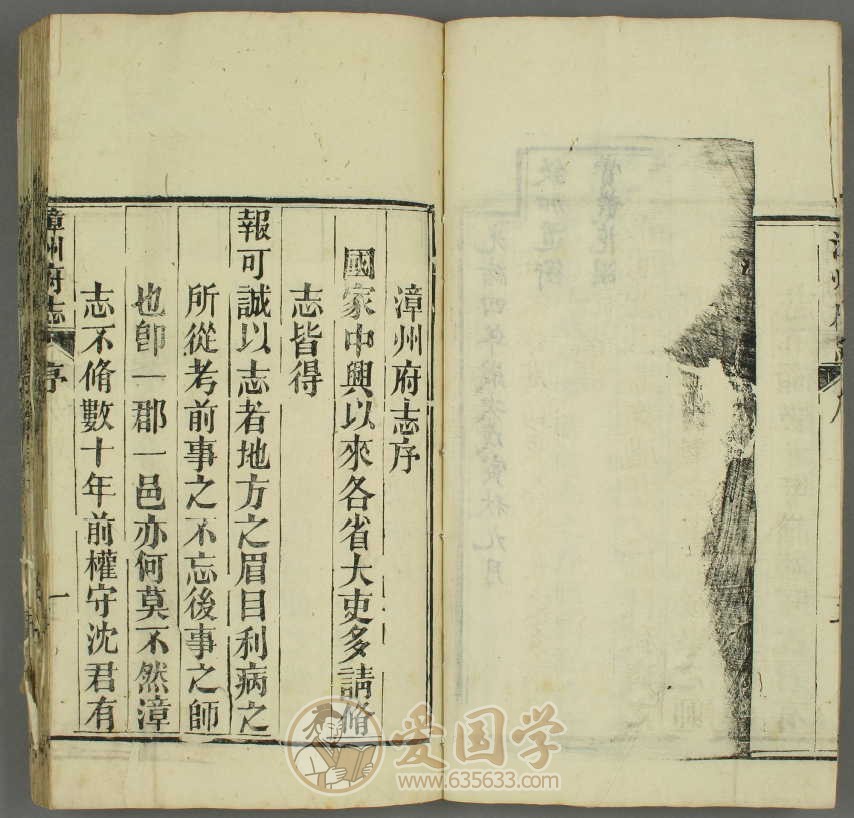 漳州府志序
國家中興以來各省大吏多請脩
志皆得
報可誠以志者地方之眉目利病之
所從考前事之不忘後事之師
也卽一郡一邑亦何莫不然漳
志不脩數十年前權守沈君有
漳州府志
序
一
賞戴花翎
欽加道銜
光緒四年歲次戊寅秋九月
爱国学
www.635633.com